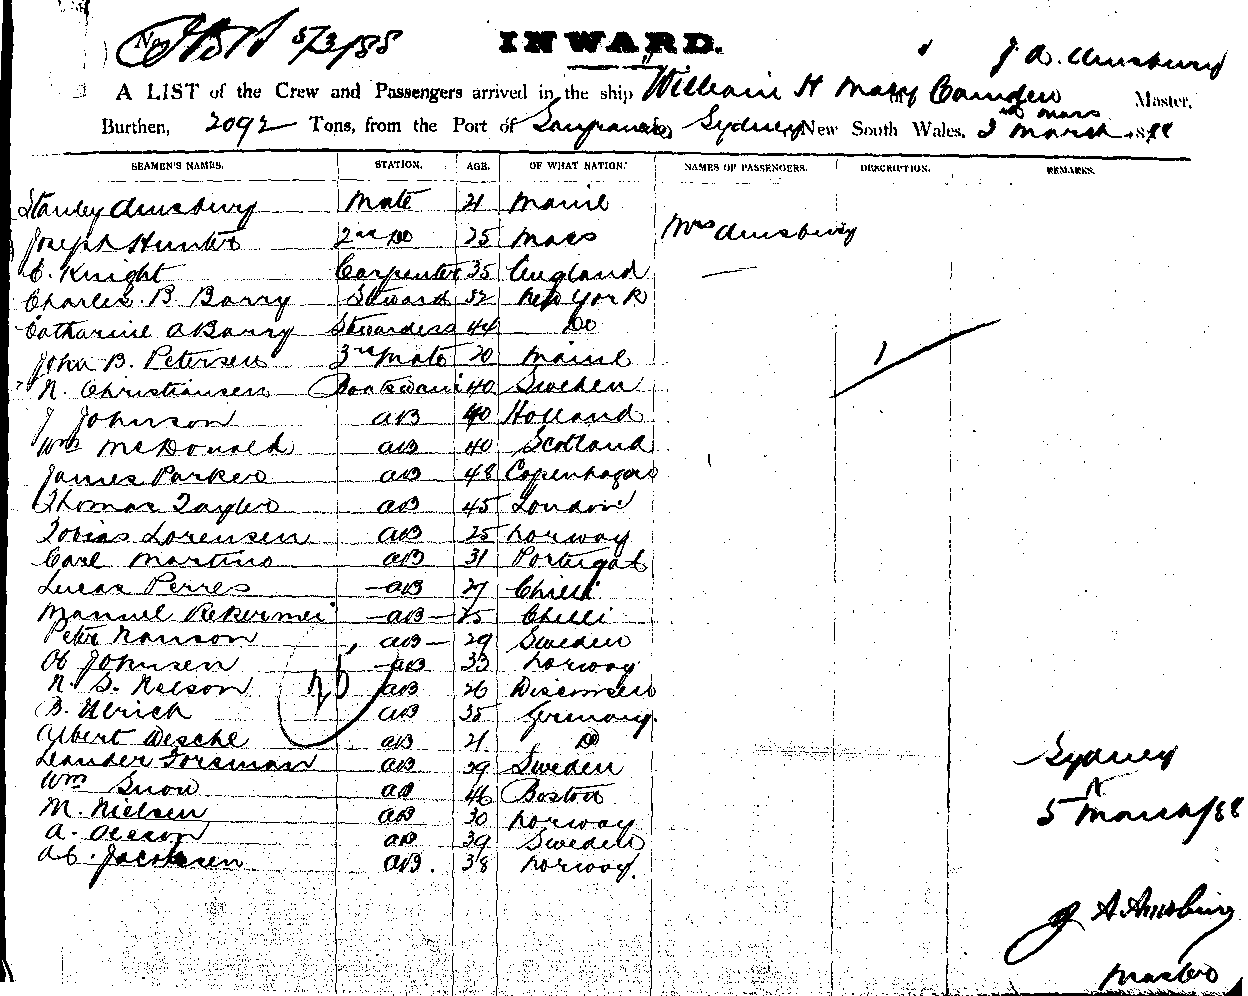 No. 5/3/88 INWARD.
J. A. Amsbury
A LIST of the Crew and Passengers arrived in the ship William H Macy of Camden Master,
Burthen, 2092 Tons, from the Port of Sanfrancisco Sydney New South Wales, 2nd March 1888
mass
SEAMEN'S NAMES. STATION. AGE. OF WHAT NATION. NAMES OF PASSENGERS. DESCRIPTION. REMARKS.
Stanley Amsbury Mate 21 Maine
Joseph Hunter 2nd Do 25 Mass Mrs Amsbury
E. Knight Carpenter 35 England
Charles B Barry Steward 52 New York
Catharine A Barry Stewardess 44 Do
John B. Petersen 3rd Mate 20 Maine 1
N. Christiansen Boatswain 40 Sweden
J Johnson AB 40 Holland
Wm McDonald AB 40 Scotland
James Parker AB 48 Copenhagen
Thomas Taylor AB 45 London
Tobias Lorensen AB 25 Norway
Carl Martino AB 31 Portugal
Lucas Perres AB 27 Chilli
Manuel AB 25 Chilli
Peter Nanson AB 29 Sweden
Johnsen AB 33 Norway
N. S. Nelson AB 26
25
B. Ulrich AB 35 Germany.
Albert Desche AB 21 Do
Leander Forsman AB 29 Sweden
Sydney
Wm Snow AB 46 Boston
M. Nielsen AB 30 Norway
5 March/88
A. Olsson AB 39 Sweden
Jacobsen AB. 38 Norway.
J A Amsbury
Master